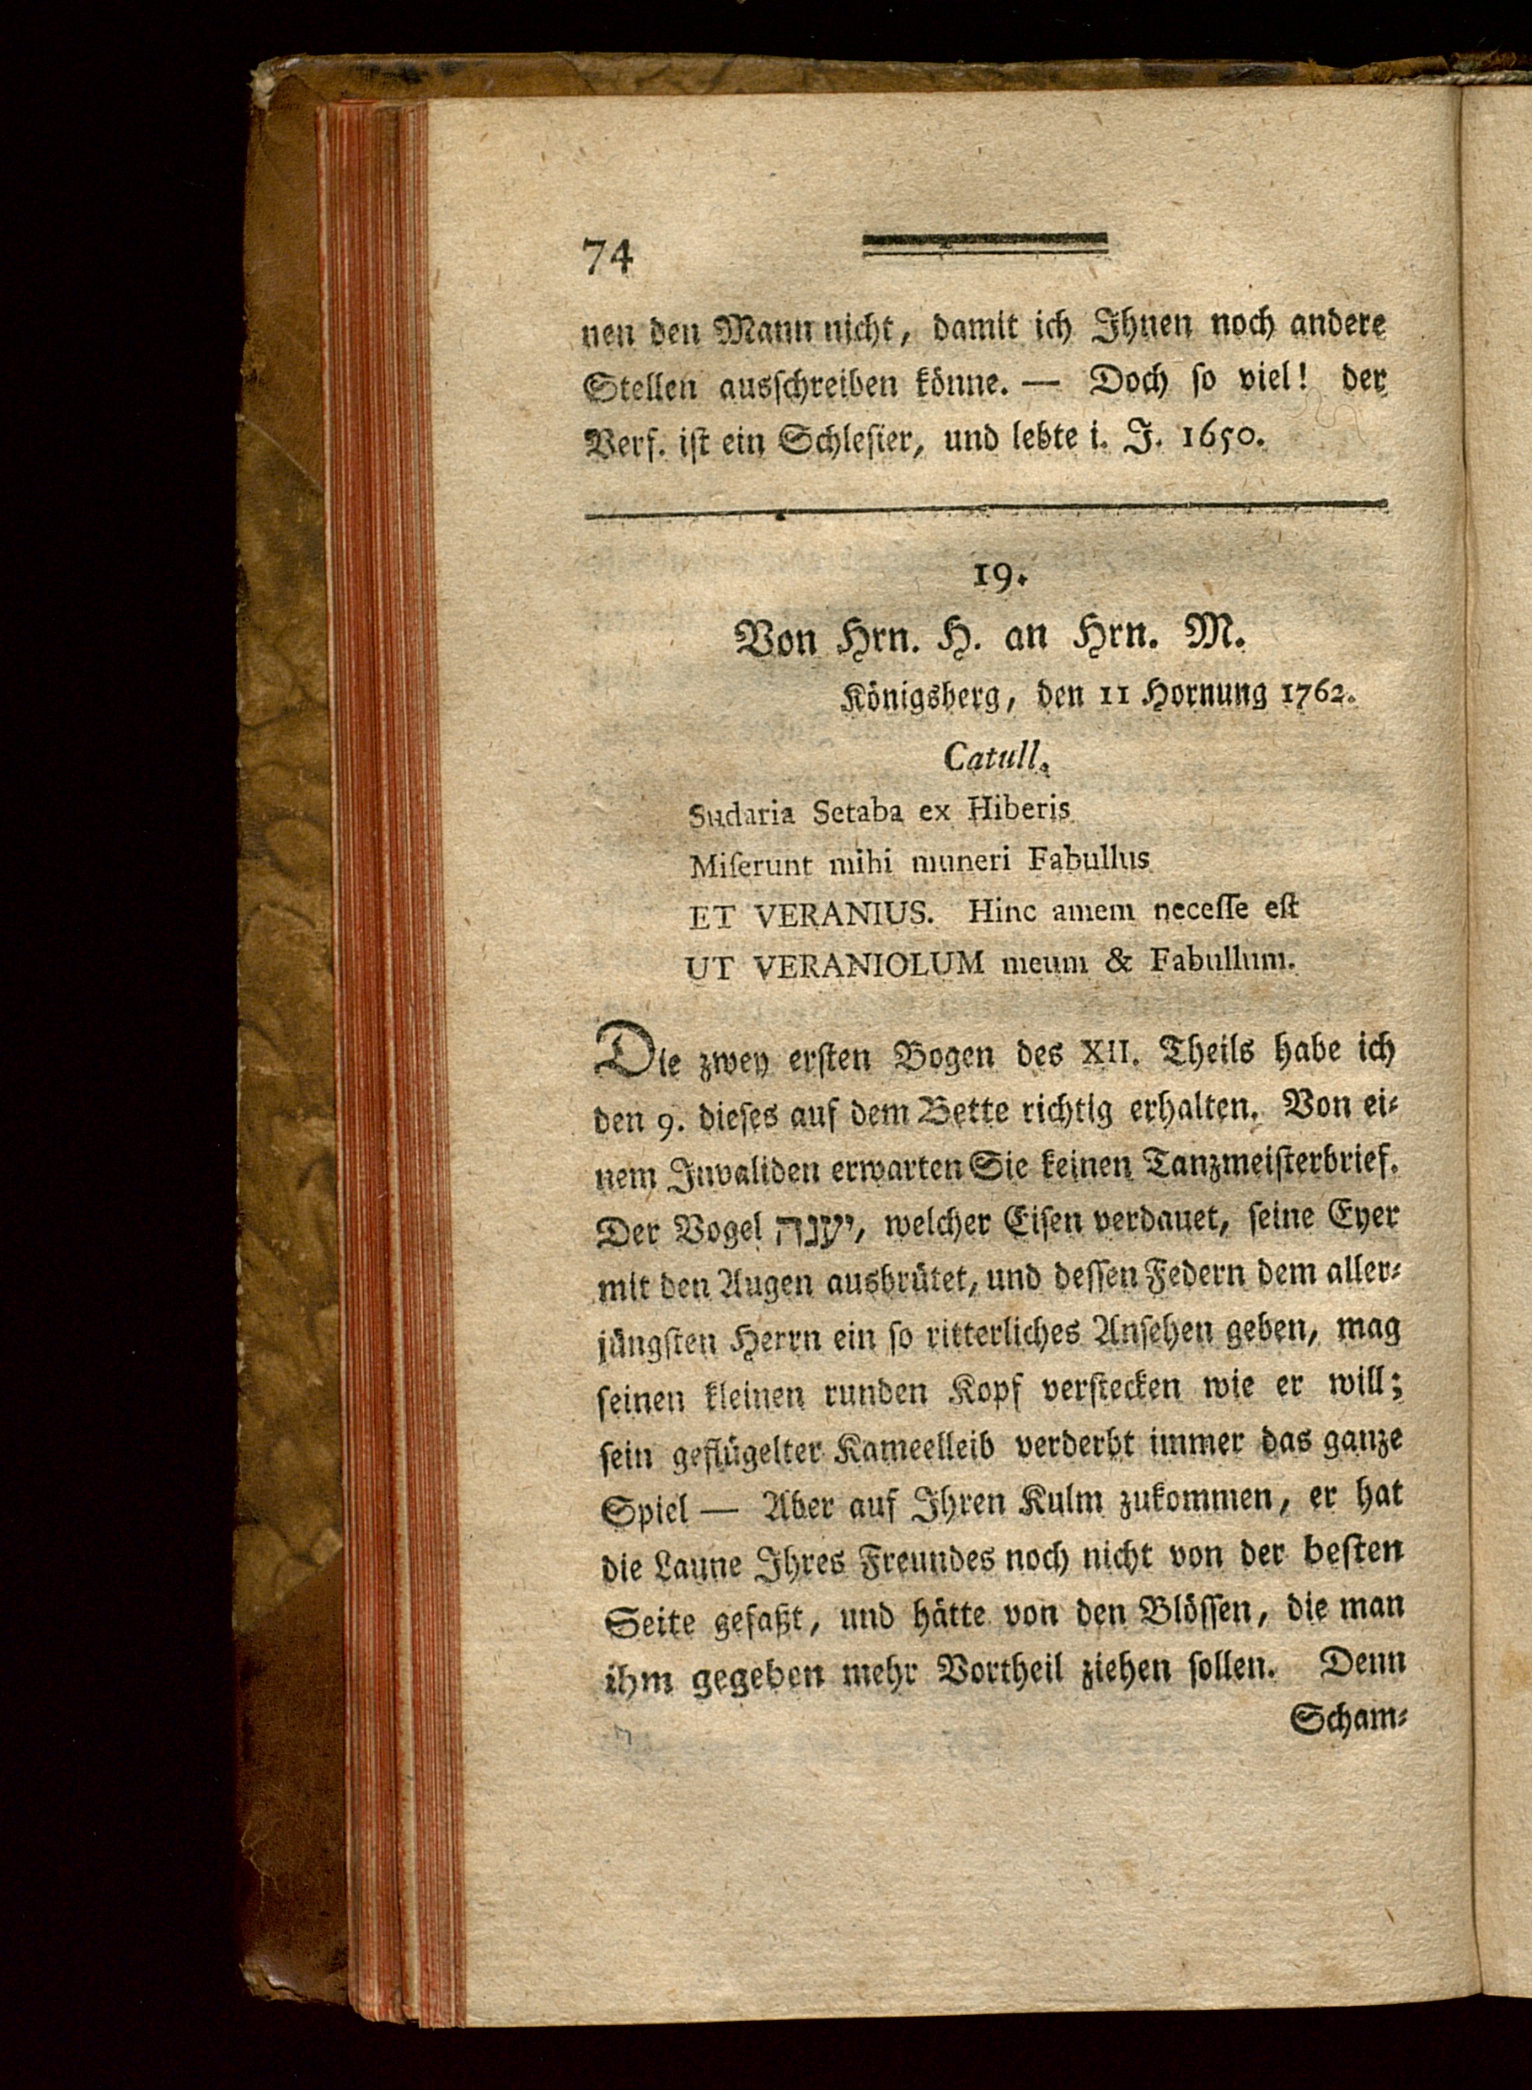 74
nen den Mann nicht, damit ich Ihnen noch andere
Stellen ausschreiben könne. — Doch so viel! der
Verf. ist ein Schlesier, und lebte i. J. 1650.
19.
Von Hrn. H. an Hrn. M.
Königsberg, den 11 Hornung 1762.
Catull.
Sudaria Setaba ex Hiberis
Miſerunt mihi muneri Fabullus
ET VERANIUS. Hinc amem neceſſe eſt
UT VERANIOLUM meum & Fabullum.
Die zwey erſten Bogen des XII. Theils habe ich
den 9. dieſes auf dem Bette richtig erhalten. Von ei-
nem Invaliden erwarten Sie keinen Tanzmeiſterbrief.
Der Vogel יענה, welcher Eiſen verdauet, ſeine Eyer
mit den Augen ausbrütet, und deſſen Federn dem aller-
jüngſten Herrn ein ſo ritterliches Anſehen geben, mag
ſeinen kleinen runden Kopf verſtecken wie er will;
ſein geflügelter Kameelleib verderbt immer das ganze
Spiel — Aber auf Ihren Kulm zukommen, er hat
die Laune Ihres Freundes noch nicht von der beſten
Seite gefaßt, und hätte von den Blöſſen, die man
ihm gegeben mehr Vortheil ziehen ſollen. Denn
Scham-